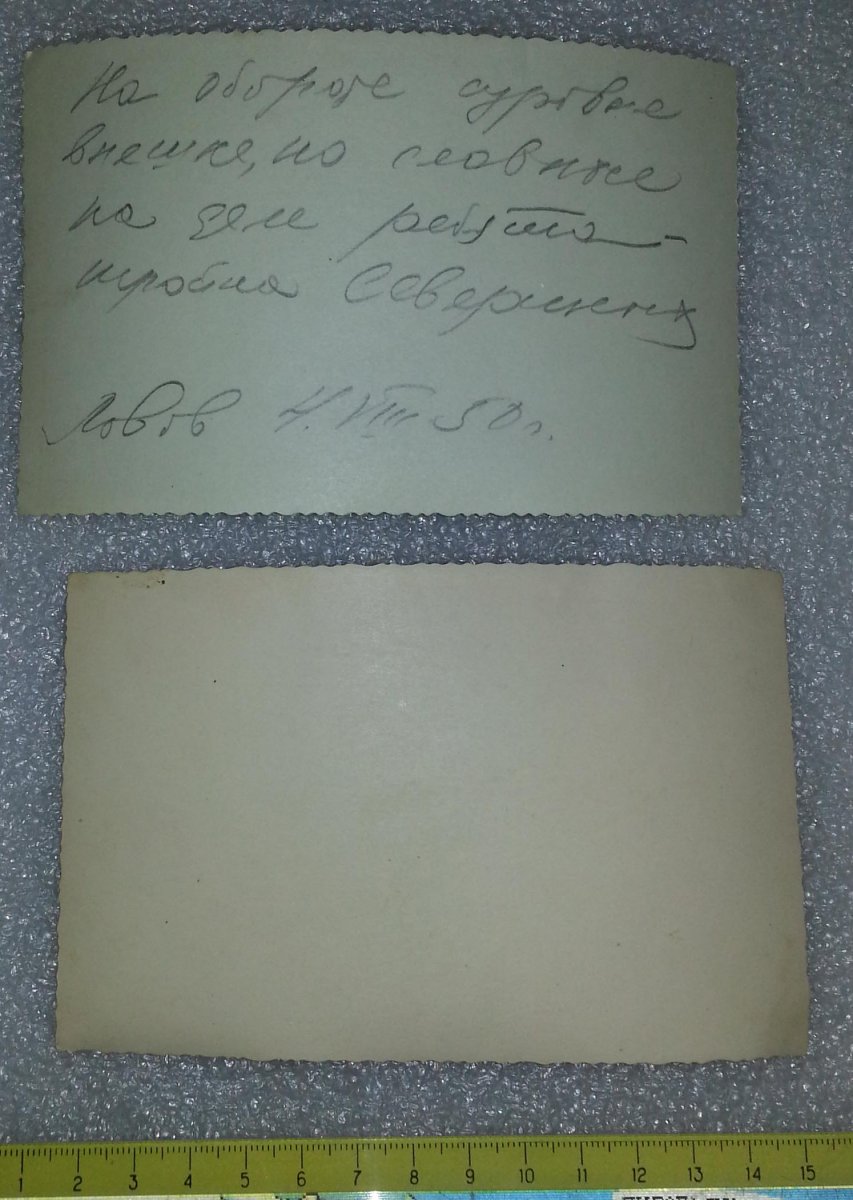 На обороте суровые
внешне, но славные
на деле ребята—
тройка Севериных
Львов 4.VIII 50 г.
1 2 3 4 5 6 7 8 9 10 11 12 13 14 15